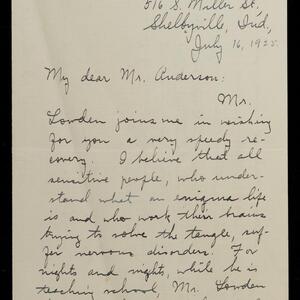 516 S. Miller St.,
Shelbyville, Ind.,
July 16, 1925.
My dear Mr. Anderson:
Mr.
Lowden joins me in wishing
for you a very speedy re-
covery. I believe that all
sensitive people, who under-
stand what an enigma life
is and who work their brains
trying to solve the tangle, suf-
fer nervous disorders. For
nights and nights, while he is
teaching school, Mr. Lowden